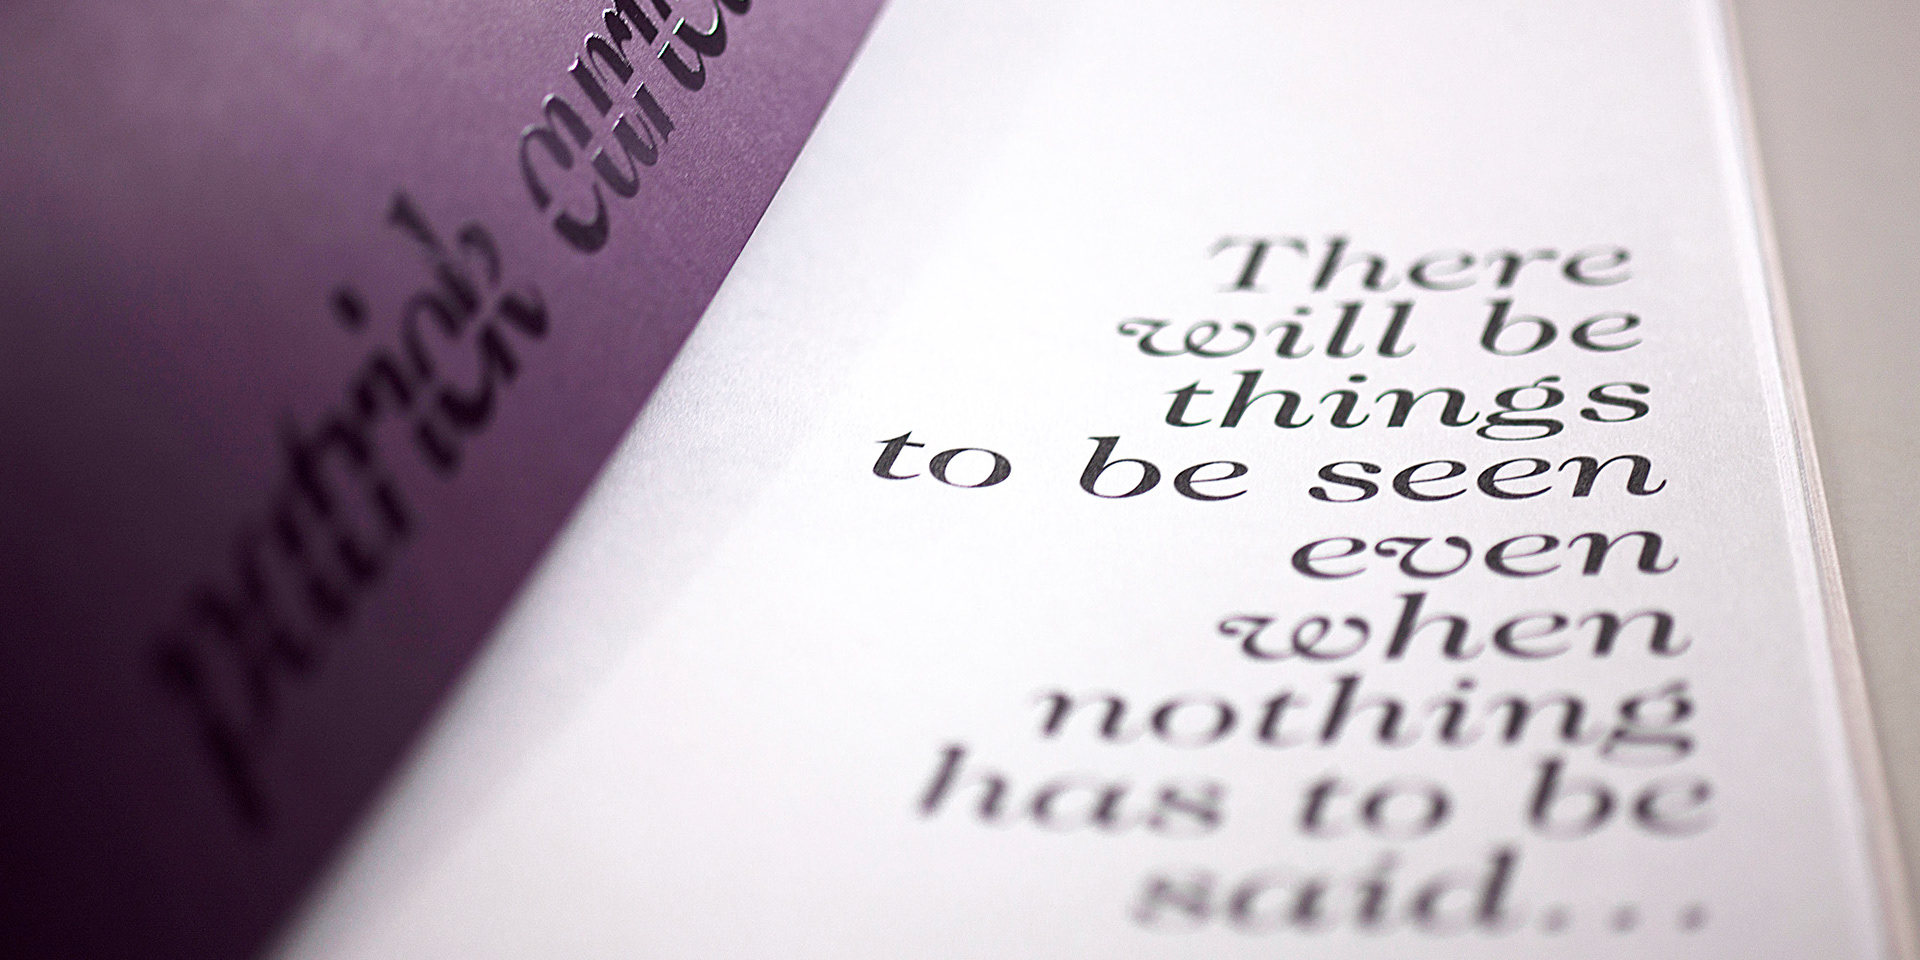 There
will be
things
to be seen
even
when
nothing
has to be
said...